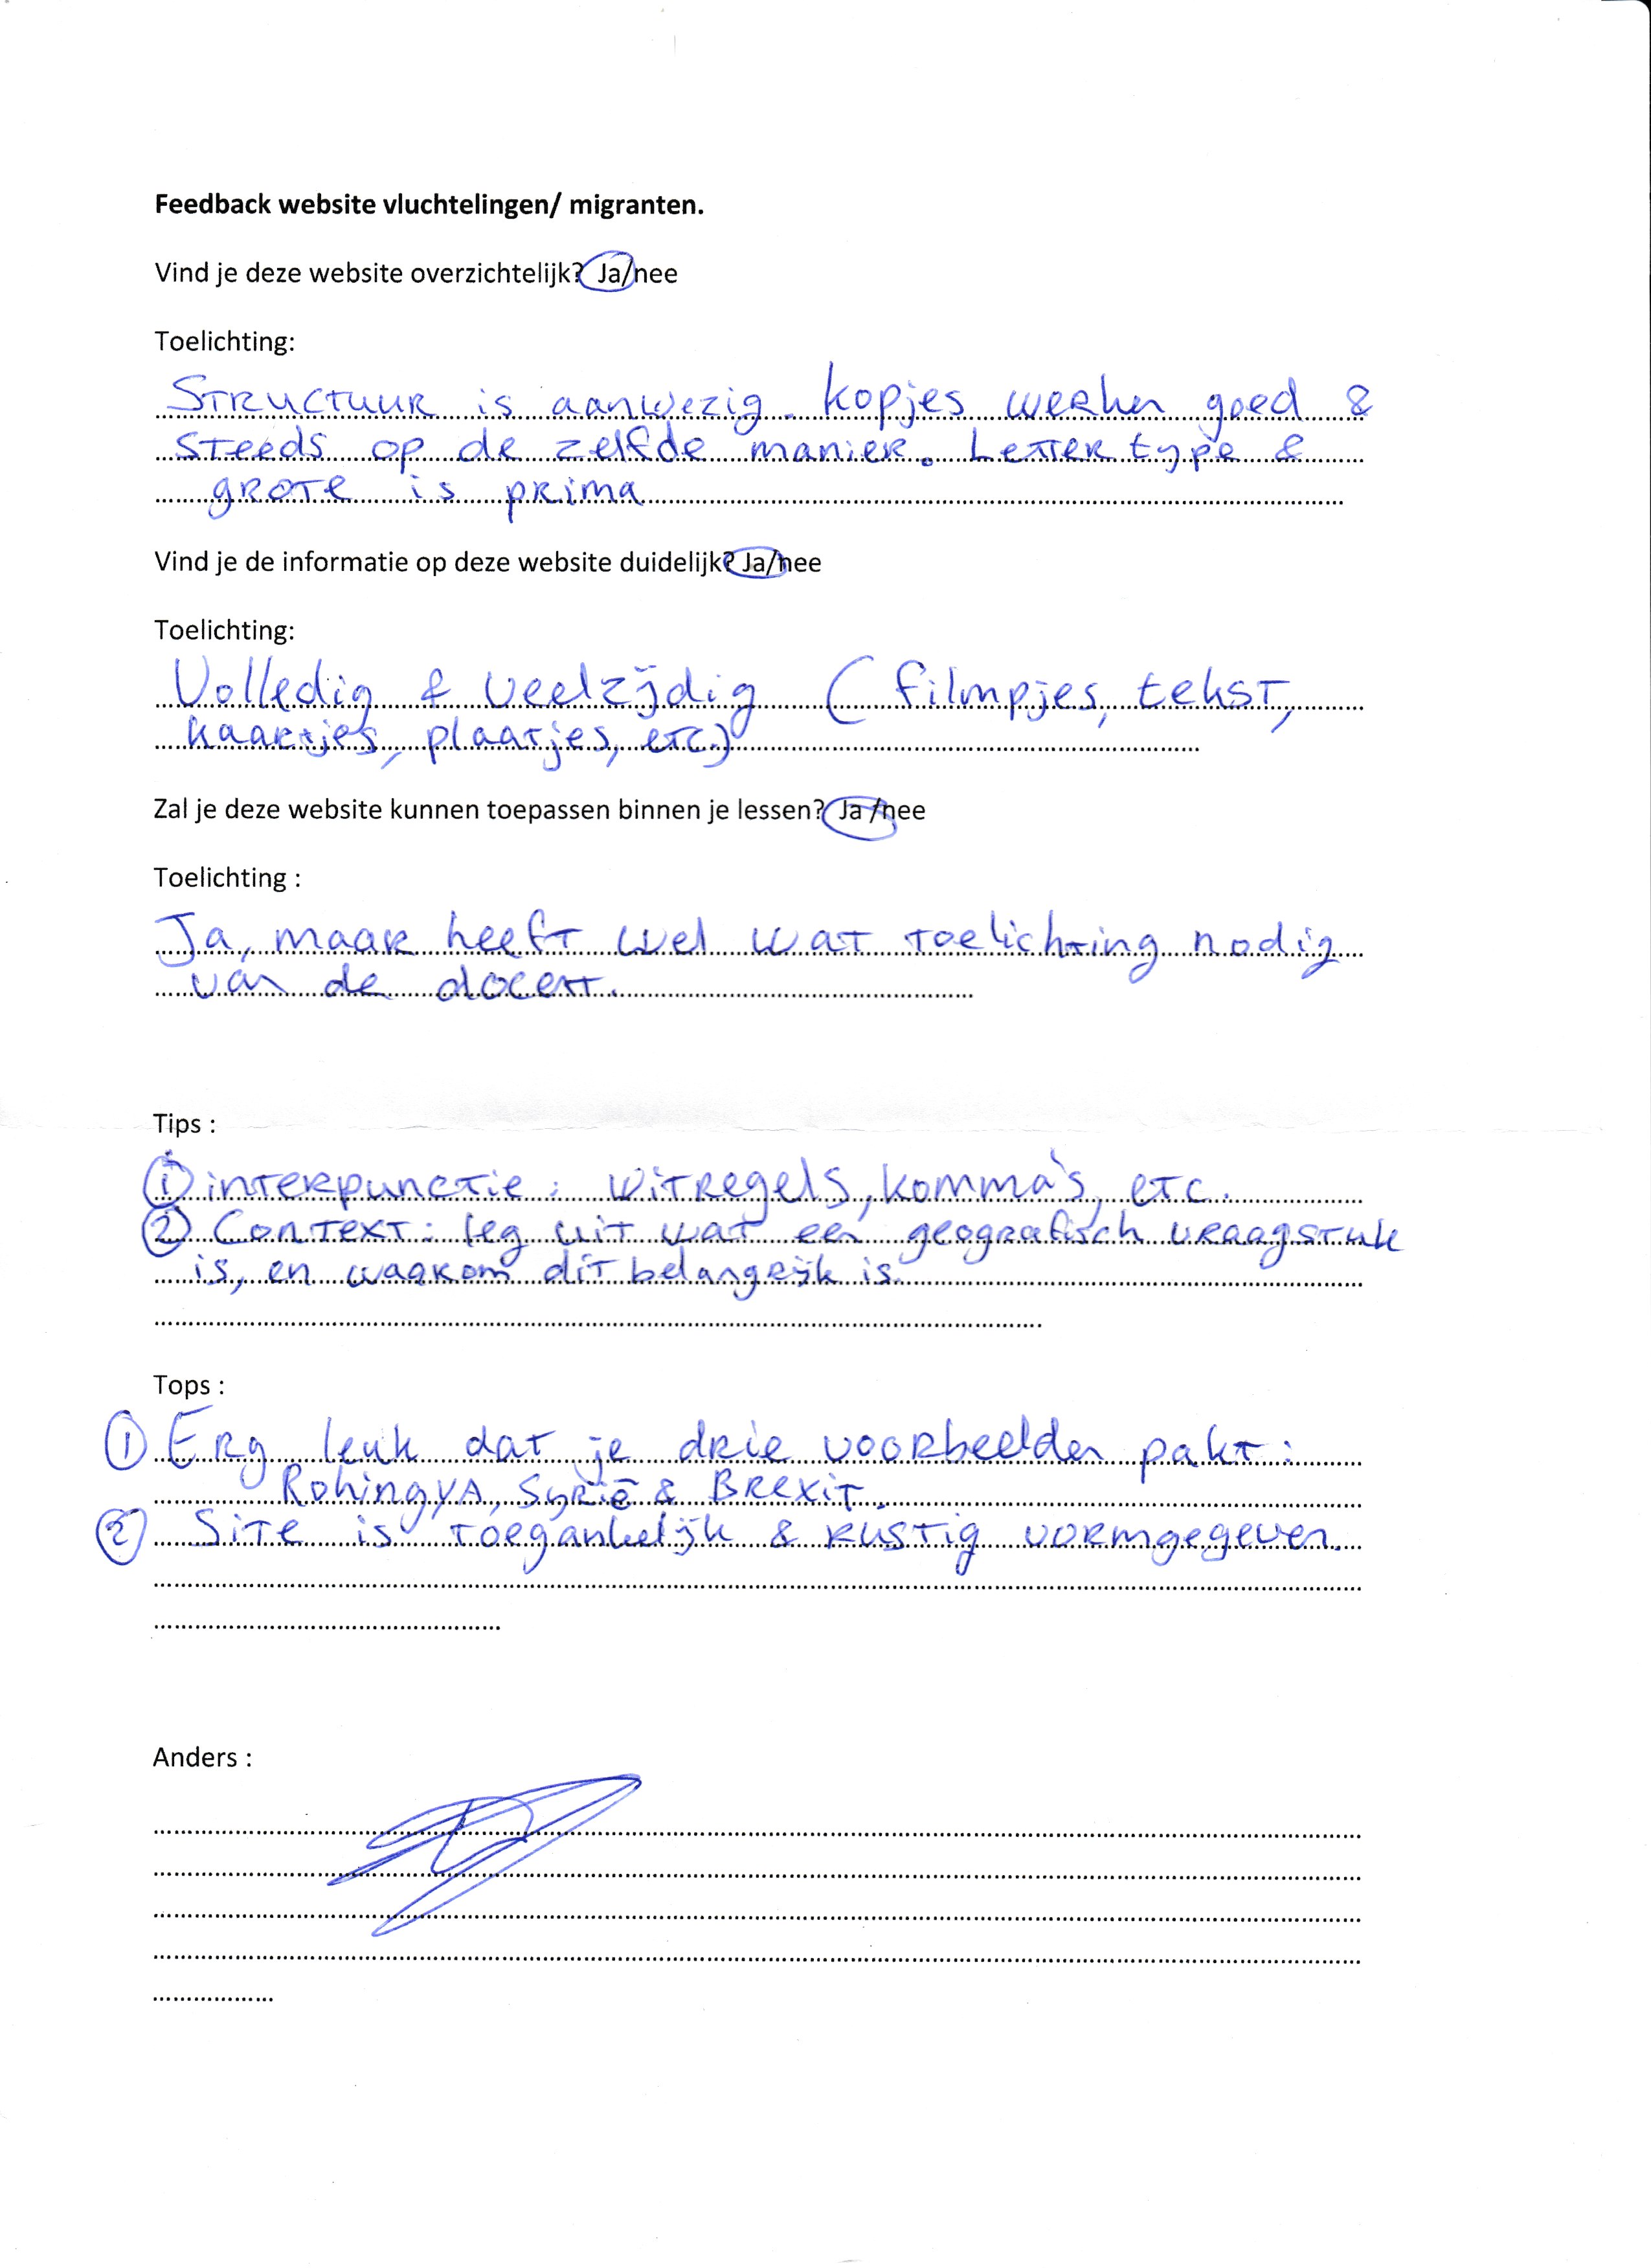 Feedback website vluchtelingen/ migranten.
Vind je deze website overzichtelijk? Ja/nee
Toelichting:
Structuur is aanwezig. Kopjes werken goed &
steeds op de zelfde manier. Letter type &
grote is prima
Vind je de informatie op deze website duidelijk? Ja/nee
Toelichting:
Volledig & veelzijdig (filmpjes, tekst,
kaartjes, plaatjes, etc.)
Zal je deze website kunnen toepassen binnen je lessen? Ja /nee
Toelichting :
Ja, maar heeft wel wat toelichting nodig
van de docent.
Tips :
① interpunctie: witregels, komma's, etc.
② Context: leg uit wat een geografisch vraagstuk
is, en waarom dit belangrijk is.
Tops :
① Erg leuk dat je drie voorbeelden pakt:
Rohingya, Syrië & Brexit.
② Site is toegankelijk & rustig vormgegeven.
Anders :